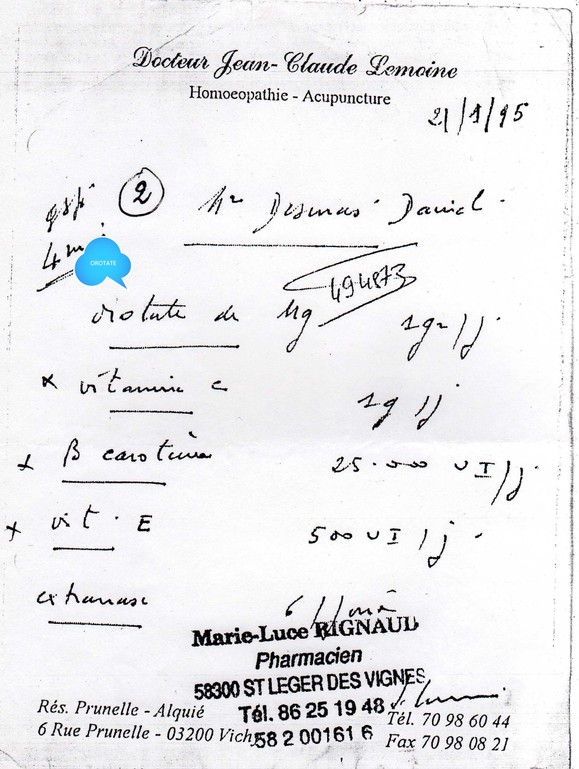 Docteur Jean-Claude Lemoine
Homoeopathie - Acupuncture
21/1/95
qsp
2
Mr Desmas Daniel
4 m
OROTATE
494873
orotate de Mg 1gr/j
x vitamine C 1g/j
x β carotène 25.000 UI/j
x vit. E 500 UI/j
extranase 6/
Marie-Luce RIGNAUD
Pharmacien
58300 ST LEGER DES VIGNES
Tél. 86 25 19 48
58 2 00161 6
Rés. Prunelle - Alquié
6 Rue Prunelle - 03200 Vich
Tél. 70 98 60 44
Fax 70 98 08 21